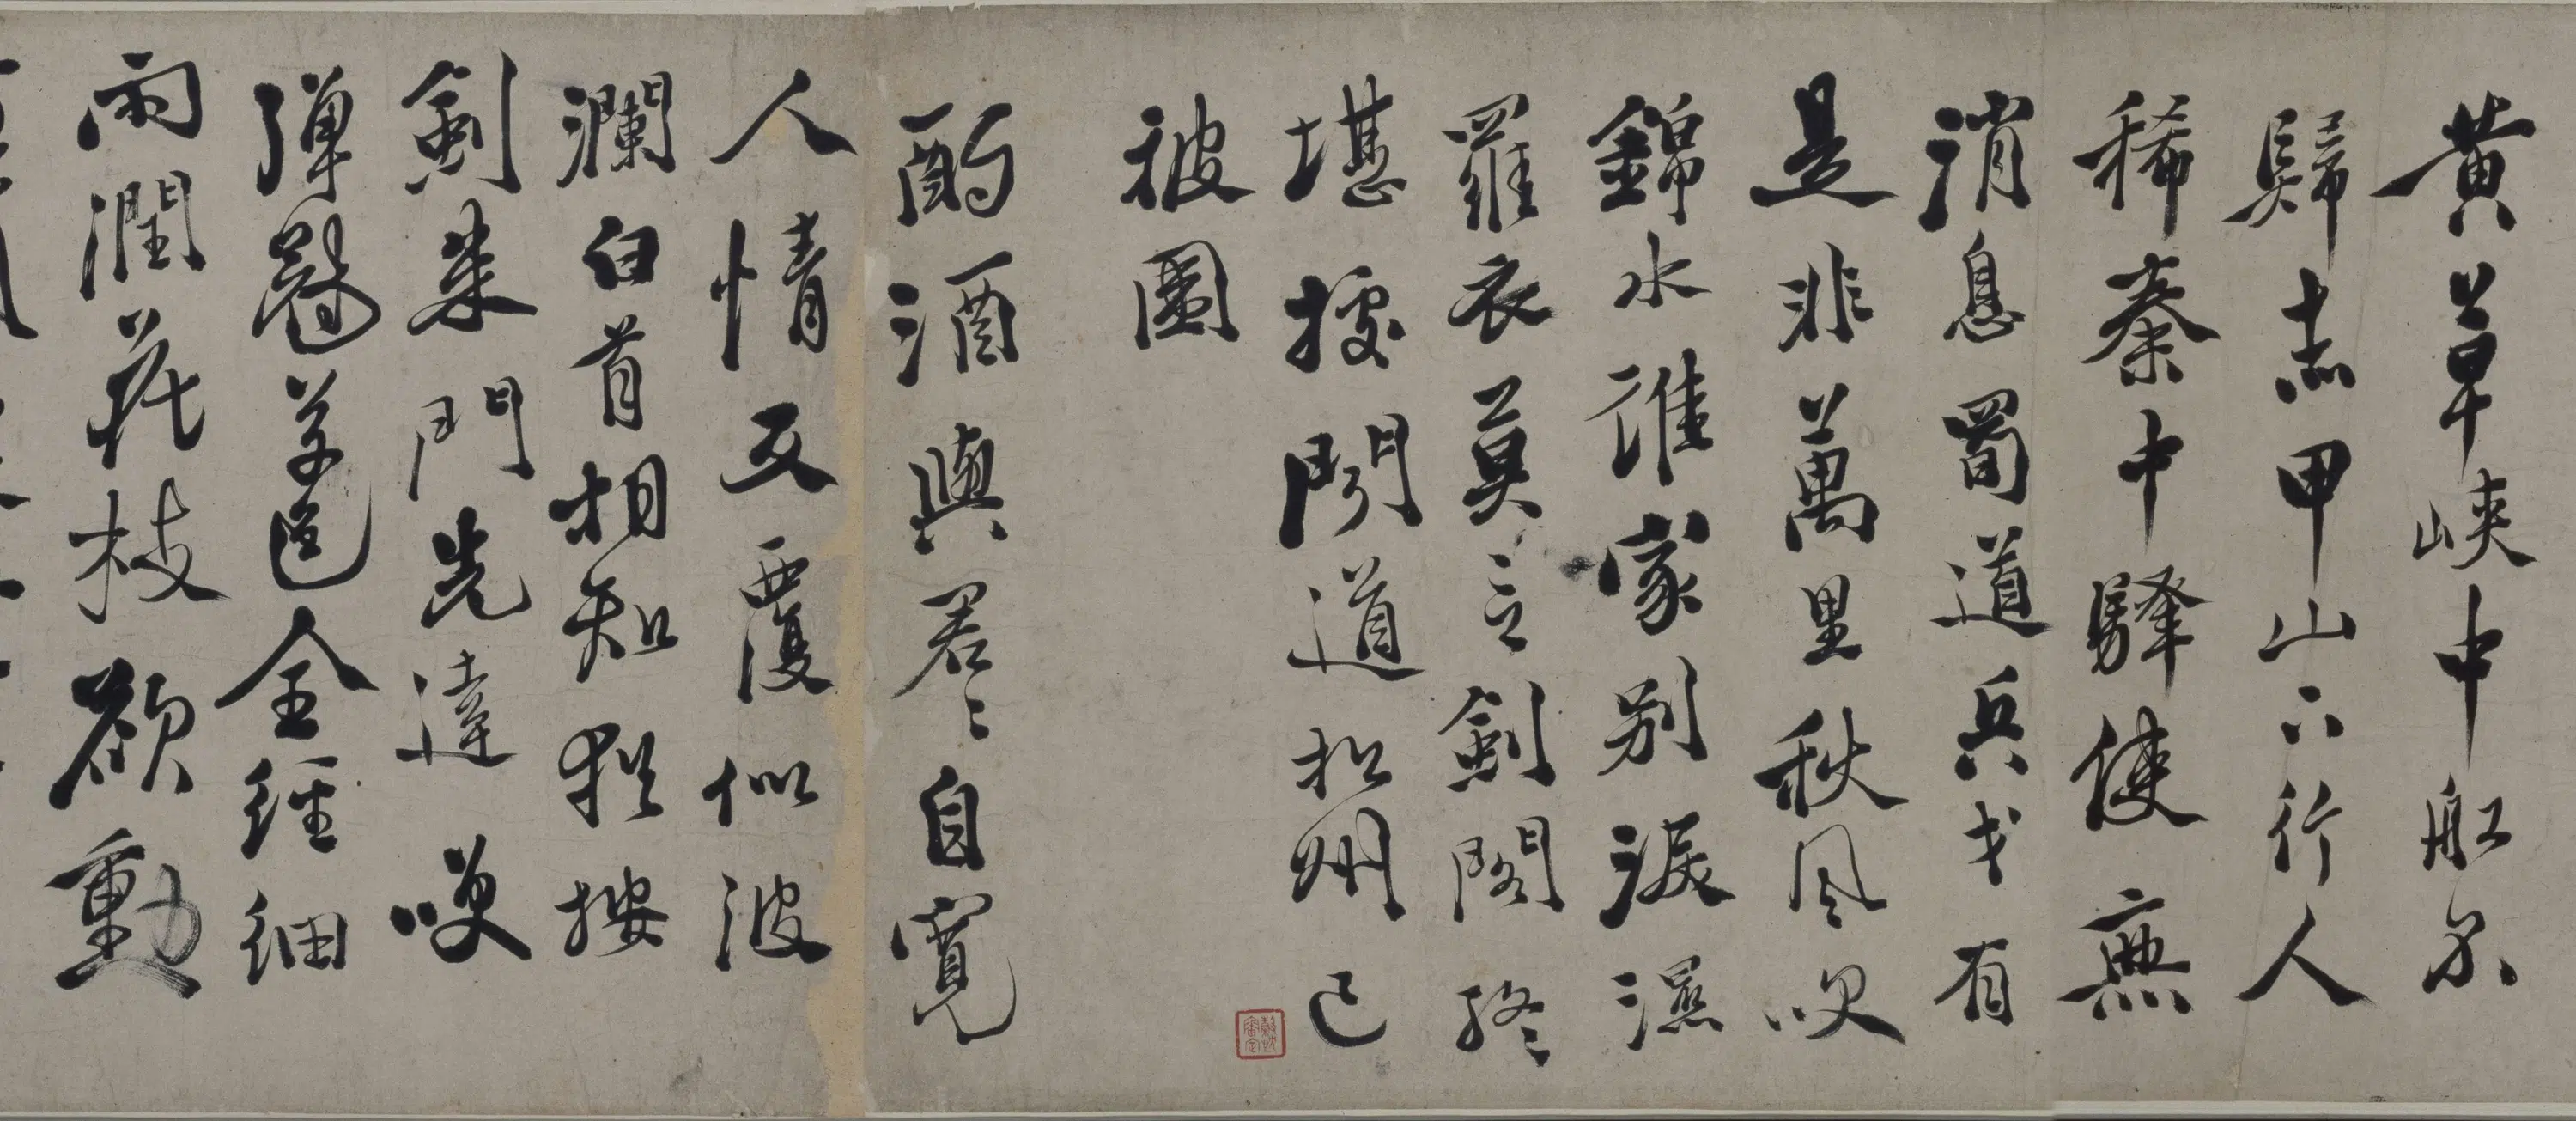 黄草峽中船不
歸赤甲山下行人
稀秦中驛使無
消息蜀道兵戈有
是非萬里秋風吹
錦水誰家別淚濕
羅衣莫言劍閣終
堪據聞道松州已
被圍
酌酒與君〻自寬
人情反覆似波
瀾白首相知猶按
劍朱門先達笑
彈冠草色全經細
雨潤花枝欲動